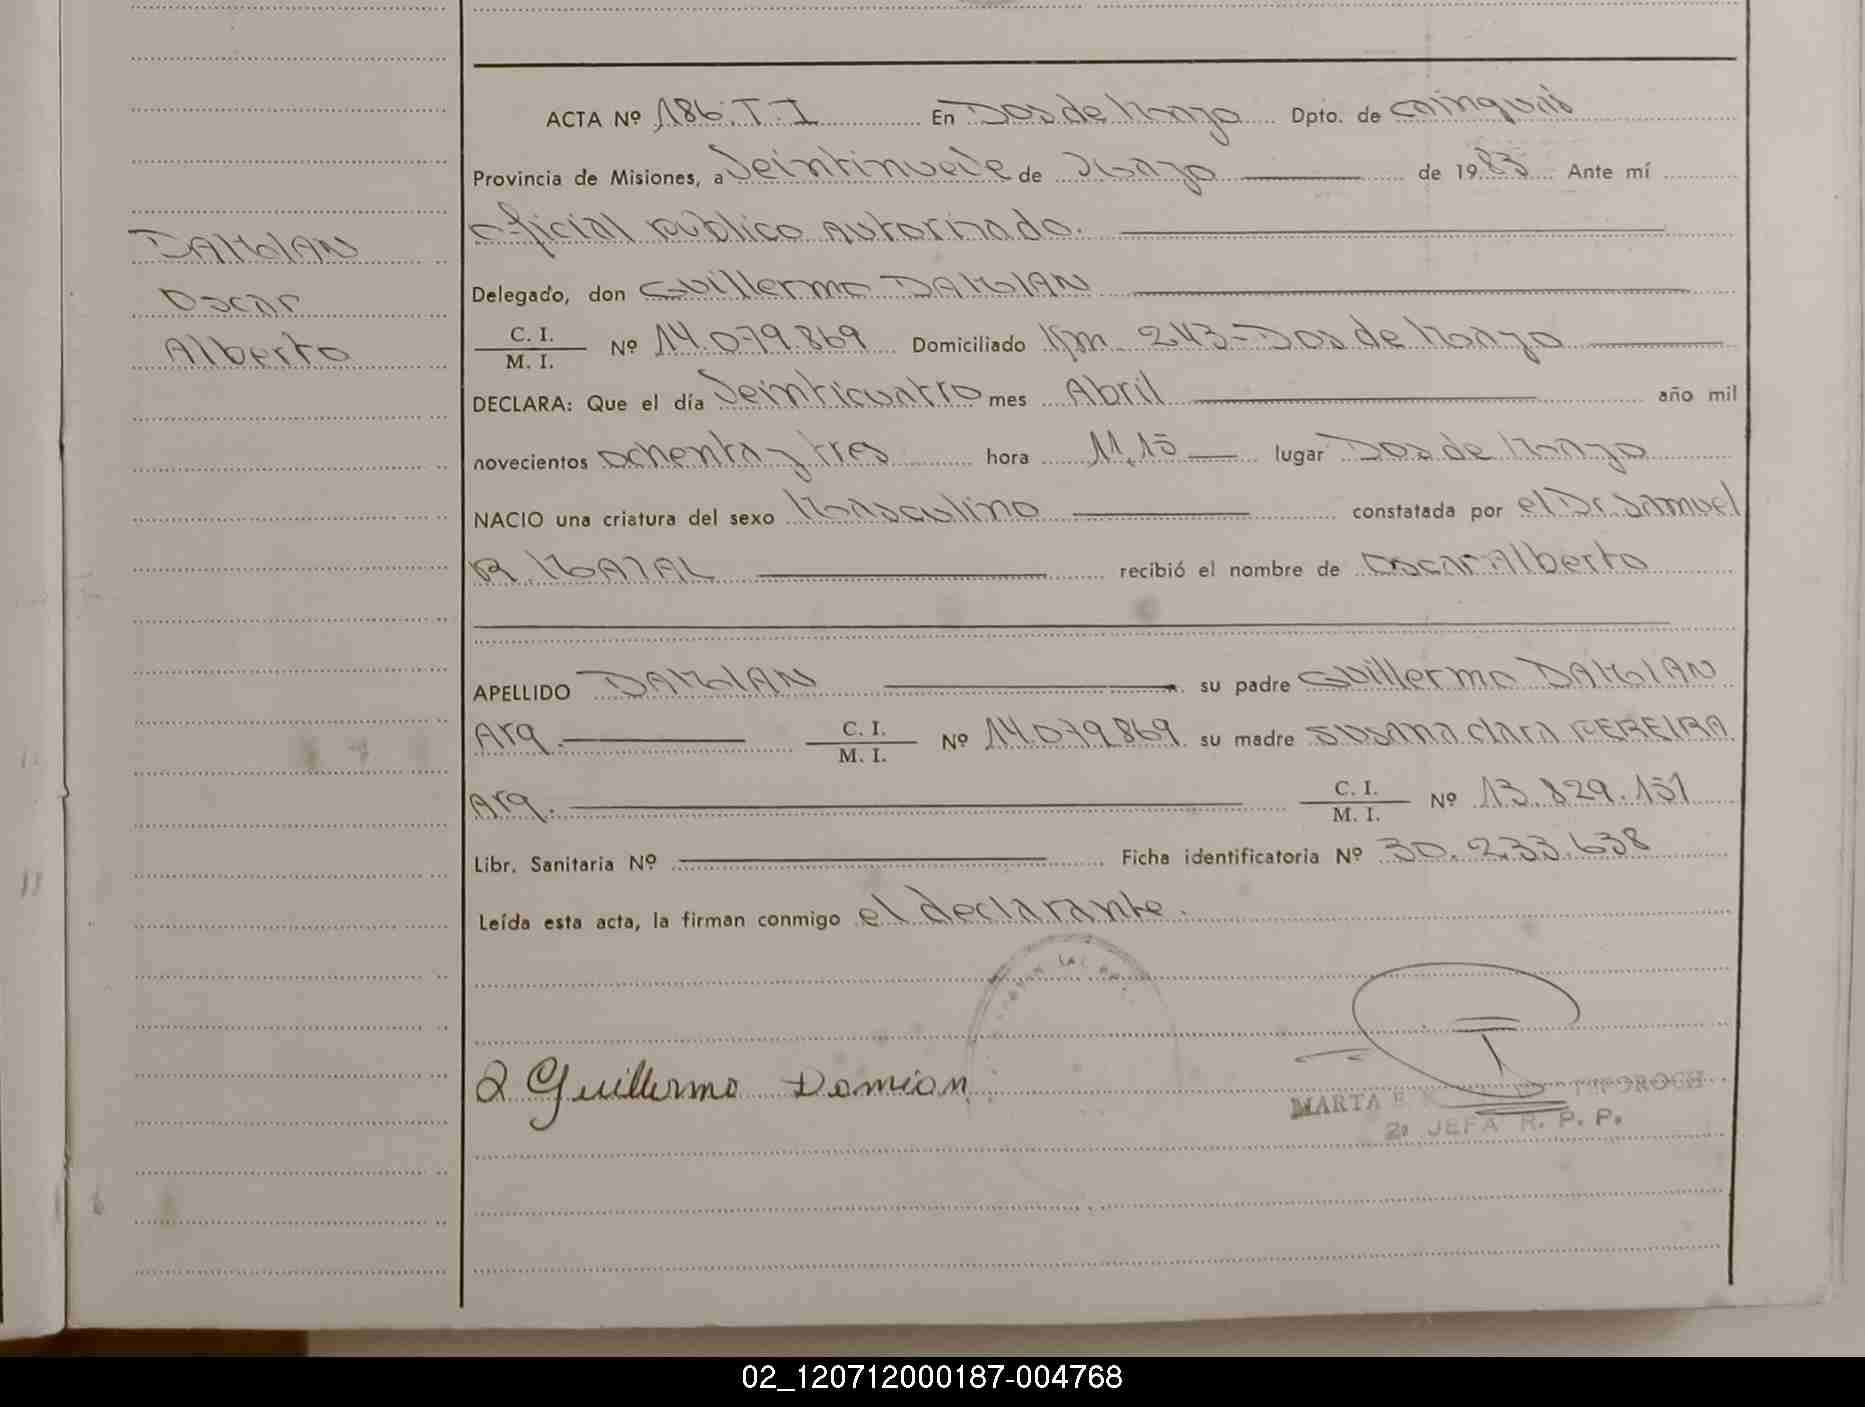 ACTA Nº 186. T. I En Dos de Mayo Dpto. de Cainguás
Provincia de Misiones, a Veintinueve de Mayo de 1983 Ante mí
Oficial público autorizado.
DAMIAN
Oscar
Alberto
Delegado, don Guillermo DAMIAN
C. I.
M. I. Nº 14.079.869 Domiciliado Km. 243-Dos de Mayo
DECLARA: Que el día Veinticuatro mes Abril año mil
novecientos ochenta y tres hora 11,15 lugar Dos de Mayo
NACIO una criatura del sexo Masculino constatada por el Dr. Samuel
R. recibió el nombre de Oscar Alberto
APELLIDO DAMIAN su padre Guillermo DAMIAN
Arg. C. I.
M. I. Nº 14.079.869 su madre Susana Clara PEREIRA
Arg. C. I.
M. I. Nº 13.829.151
Libr. Sanitaria Nº Ficha identificatoria Nº 30.233.638
Leída esta acta, la firman conmigo el declarante.
Guillermo Damian
MARTA
2ª JEFA R. P. P.
02_120712000187-004768